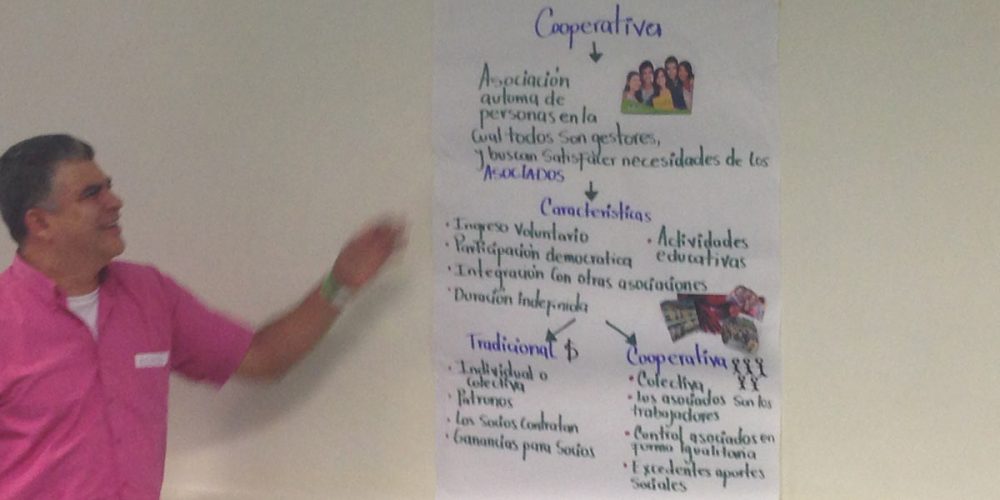 Cooperativa
Asociación
automa de
personas en la
cual todos son gestores,
y buscan satisfacer necesidades de los
ASOCIADOS
Características
• Ingreso Voluntario
• Participación democratica
• Integración con otras asociaciones
• Duración Indefinida
• Actividades
educativas
Tradicional $
• Individual o
colectiva
• Patronos
• Los Socios Contratan
• Ganancias para Socios
Cooperativa
• Colectiva
• los asociados son los
trabajadores
• Control asociados en
forma Igualitaria
• Excedentes aportes
Sociales